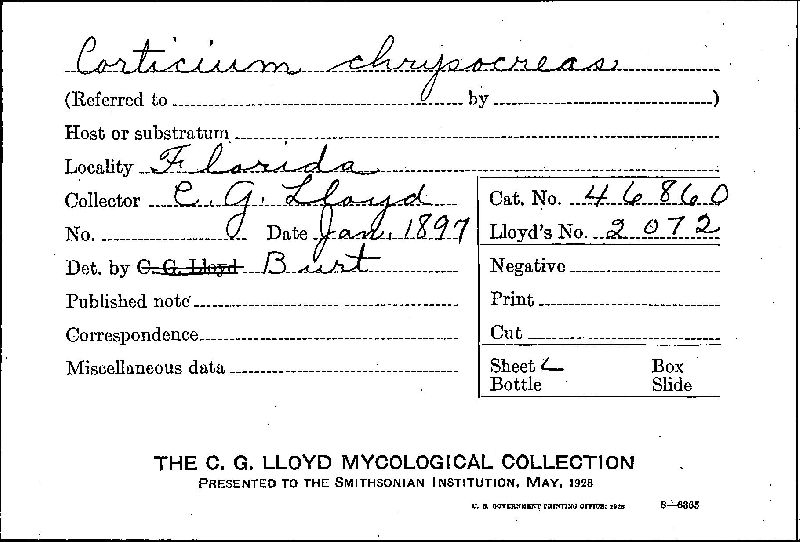 Corticium chrysocreas
(Referred to by )
Host or substratum
Locality Florida
Collector C. G. Lloyd
Cat. No. 46860
No. Date Jan. 1897
Lloyd's No. 2072
Det. by C. G. Lloyd Burt
Negative
Published note
Print
Correspondence
Cut
Miscellaneous data
Sheet Box
Bottle Slide
THE C. G. LLOYD MYCOLOGICAL COLLECTION
PRESENTED TO THE SMITHSONIAN INSTITUTION, MAY, 1928
U. S. GOVERNMENT PRINTING OFFICE: 1928 8—6365